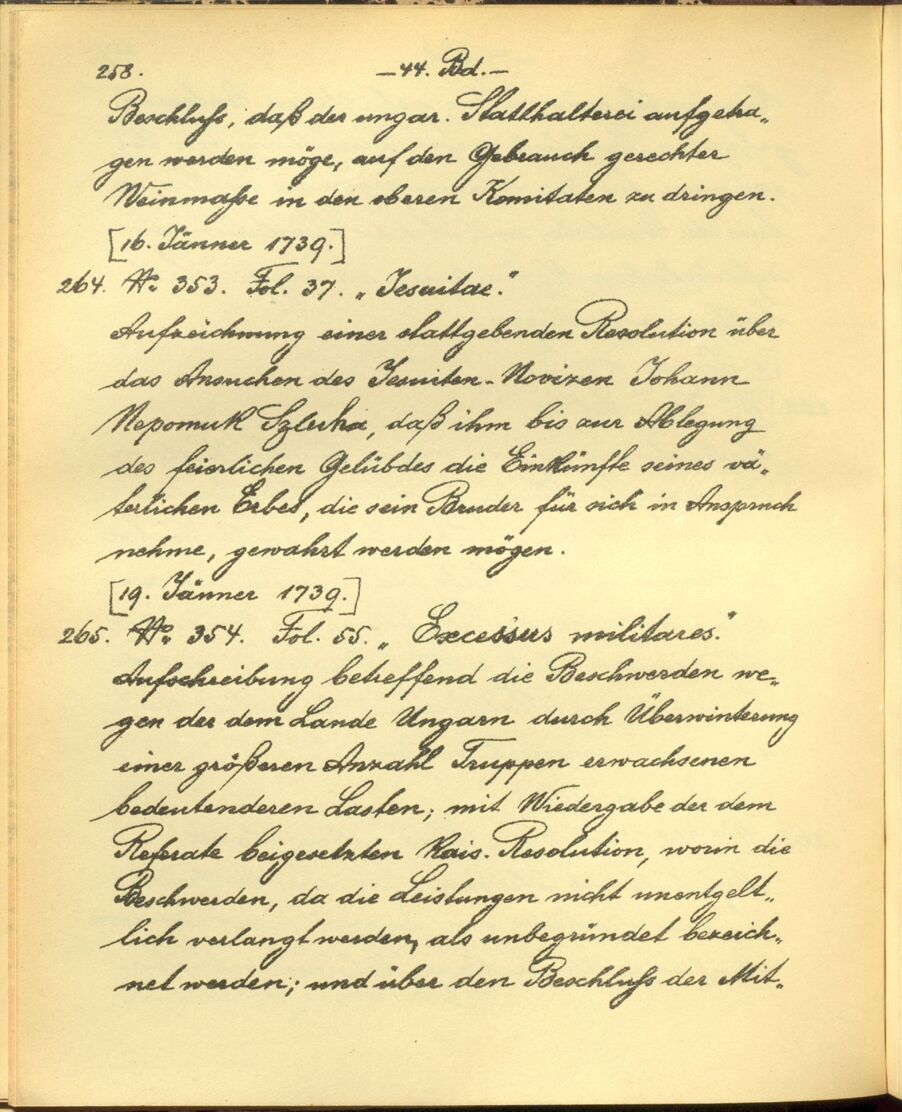 258.
— 44. Bd. —
Beschluß, daß der ungar. Statthalterei aufgetra„
gen werden möge, auf den Gebrauch gerechter
Weinmaße in den oberen Komitaten zu dringen.
[16. Jänner 1739.]
264. No 353. Fol. 37. „Jesuitae."
Aufzeichnung einer stattgebenden Resolution über
das Ansuchen des Jesuiten-Novizen Johann
Nepomuk Szluha, daß ihm bis zur Ablegung
des feierlichen Gelübdes die Einkünfte seines vä„
terlichen Erbes, die sein Bruder für sich in Anspruch
nehme, gewahrt werden mögen.
[19. Jänner 1739.]
265. No 354. Fol. 55. „Excessus militares."
Aufschreibung betreffend die Beschwerden we„
gen der dem Lande Ungarn durch Überwinterung
einer größeren Anzahl Truppen erwachsenen
bedeutenderen Lasten; mit Wiedergabe der dem
Referate beigesetzten Kais. Resolution, worin die
Beschwerden, da die Leistungen nicht unentgelt„
lich verlangt werden, als unbegründet bezeich„
net werden; und über den Beschluß der Mit„